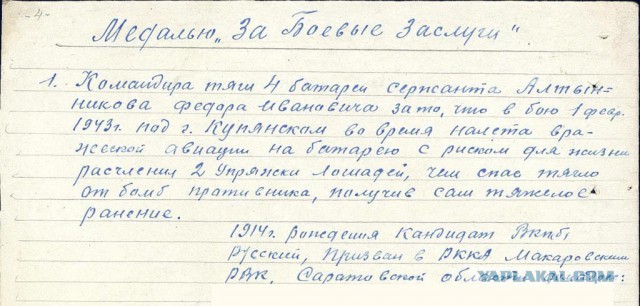 -4-
Медалью „За Боевые Заслуги“
1. Командира тяги 4 батареи сержанта Алтын=
никова Федора Ивановича за то, что в бою 1 февр.
1943г. под г. Купянском во время налета вра-
жеской авиации на батарею с риском для жизни
расчленил 2 Упряжки Лошадей, чем спас тягло
от бомб противника, получив сам тяжелое
ранение.
1914г. рождения Кандидат Вкпб,
Русский, Призван в РККА Макаровским
РВК, Саратовской области
YAPLAKAL.COM